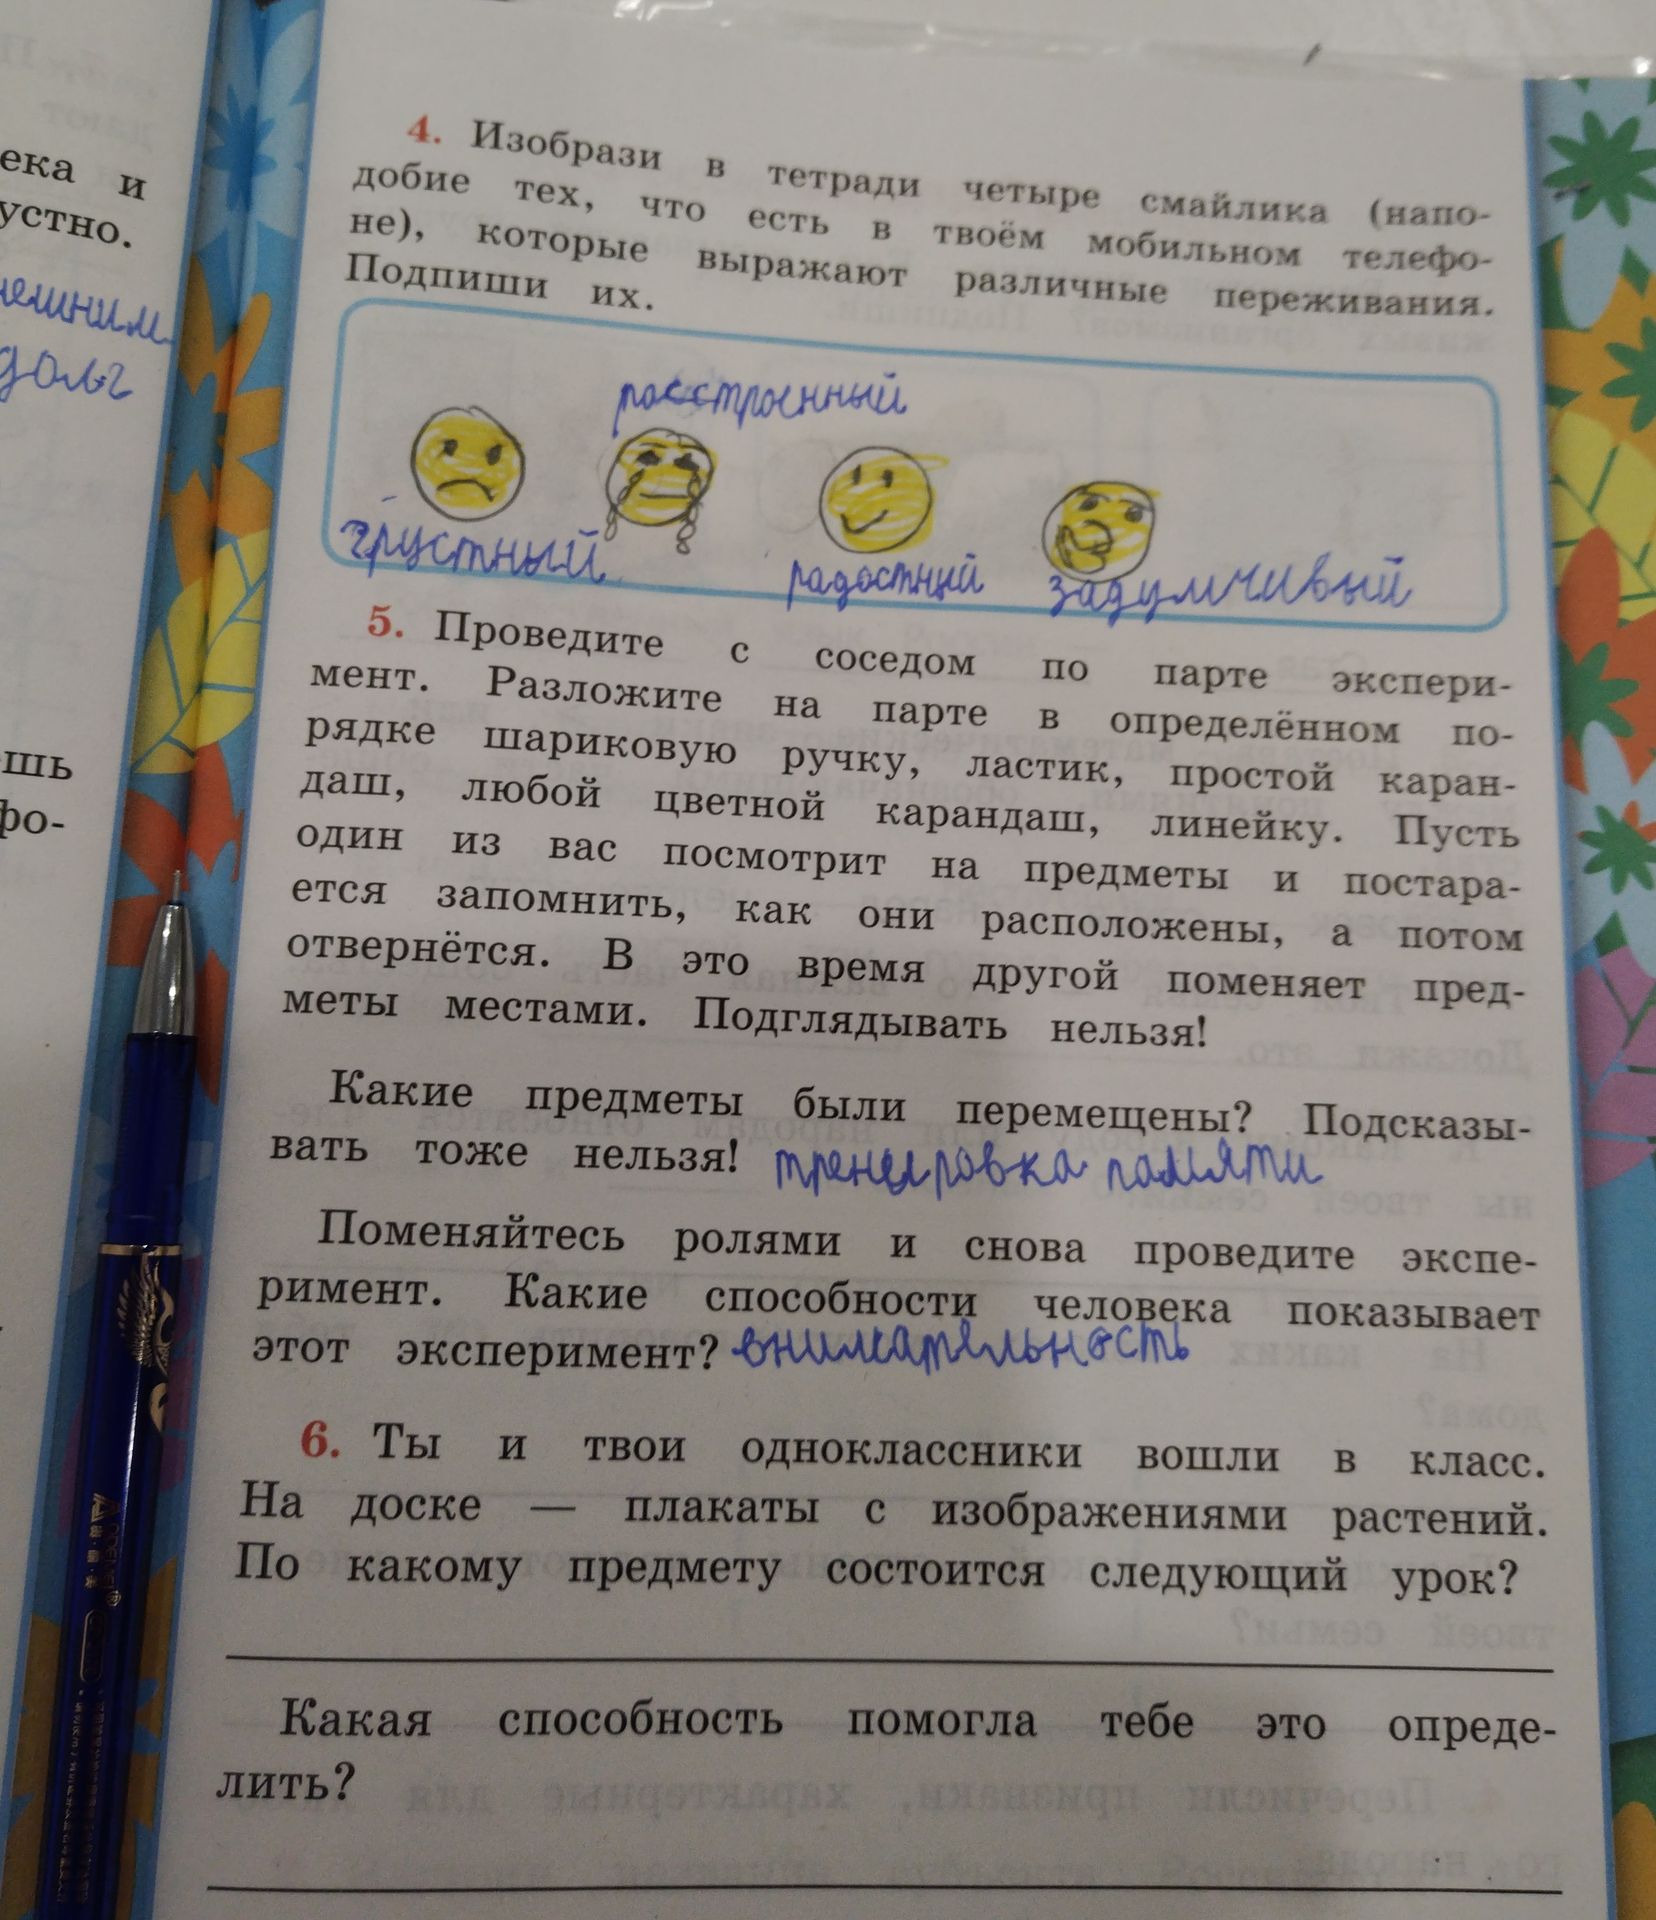 ека и
устно.
нешним
долг
ешь
фо-
4. Изобрази в тетради четыре смайлика (напо-
добие тех, что есть в твоём мобильном телефо-
не), которые выражают различные переживания.
Подпиши их.
расстроенный
грустный
радостный
задумчивый
5. Проведите с соседом по парте экспери-
мент. Разложите на парте в определённом по-
рядке шариковую ручку, ластик, простой каран-
даш, любой цветной карандаш, линейку. Пусть
один из вас посмотрит на предметы и постара-
ется запомнить, как они расположены, а потом
отвернётся. В это время другой поменяет пред-
меты местами. Подглядывать нельзя!
Какие предметы были перемещены? Подсказы-
вать тоже нельзя! тренировка памяти
Поменяйтесь ролями и снова проведите экспе-
римент. Какие способности человека показывает
этот эксперимент? внимательность
6. Ты и твои одноклассники вошли в класс.
На доске — плакаты с изображениями растений.
По какому предмету состоится следующий урок?
Какая способность помогла тебе это опреде-
лить?